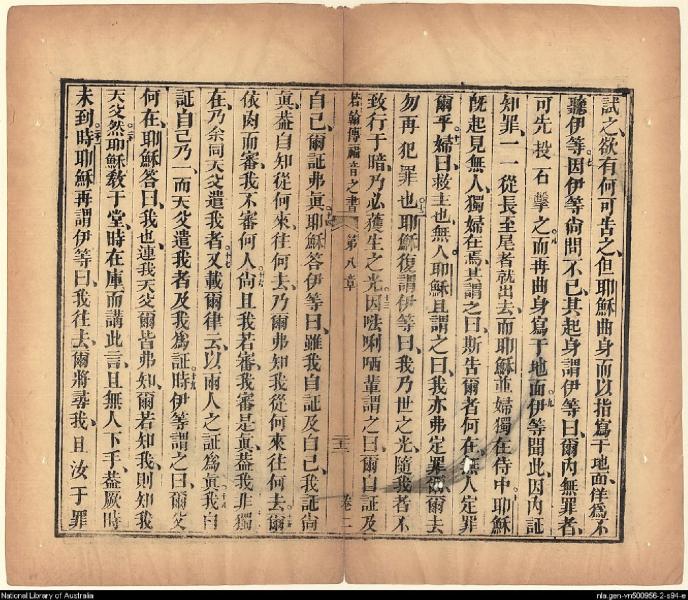 試之欲有何可告之但耶穌曲身而以指寫于地面佯為不
聽伊等因伊等尚問不已其起身謂伊等曰爾內無罪者
可先投石擊之而再曲身寫于地面伊等聞此因內証
知罪一一從長至尾者就出去而耶穌並婦獨在侍中耶穌
既起見無人獨婦在焉其謂之曰斯告爾者何在無人定罪
爾乎婦曰救主也無人耶穌且謂之曰我亦弗定罪爾去
勿再犯罪也耶穌復謂伊等曰我乃世之光隨我者不
致行于暗乃必獲生之光因𠵽唎哂輩謂之曰爾自証及
若翰傳福音之書 第八章 二十三 卷二
自己爾証弗真耶穌答伊等曰雖我自証及自己我証尚
真葢自知從何來往何去乃爾弗知我從何來往何去爾
依肉而審我不審何人尚且我若審我審是真葢我非獨
在乃余同天父遣我者又載爾律云以兩人之証為真我自
証自己乃一而天父遣我者及我為証時伊等謂之曰爾父
何在耶穌答曰我也連我天父爾皆弗知爾若知我則知我
天父然耶穌教于堂時在庫而講此言且無人下手葢厥時
未到時耶穌再謂伊等曰我往去爾將尋我且汝于罪
National Library of Australia
nla.gen-vn500956-2-s94-e